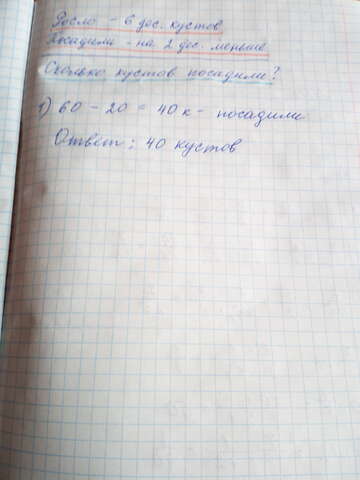 Росло - 6 дес. кустов
Посадили - на 2 дес. меньше
Сколько кустов посадили?
1) 60 - 20 = 40 к - посадили
Ответ: 40 кустов